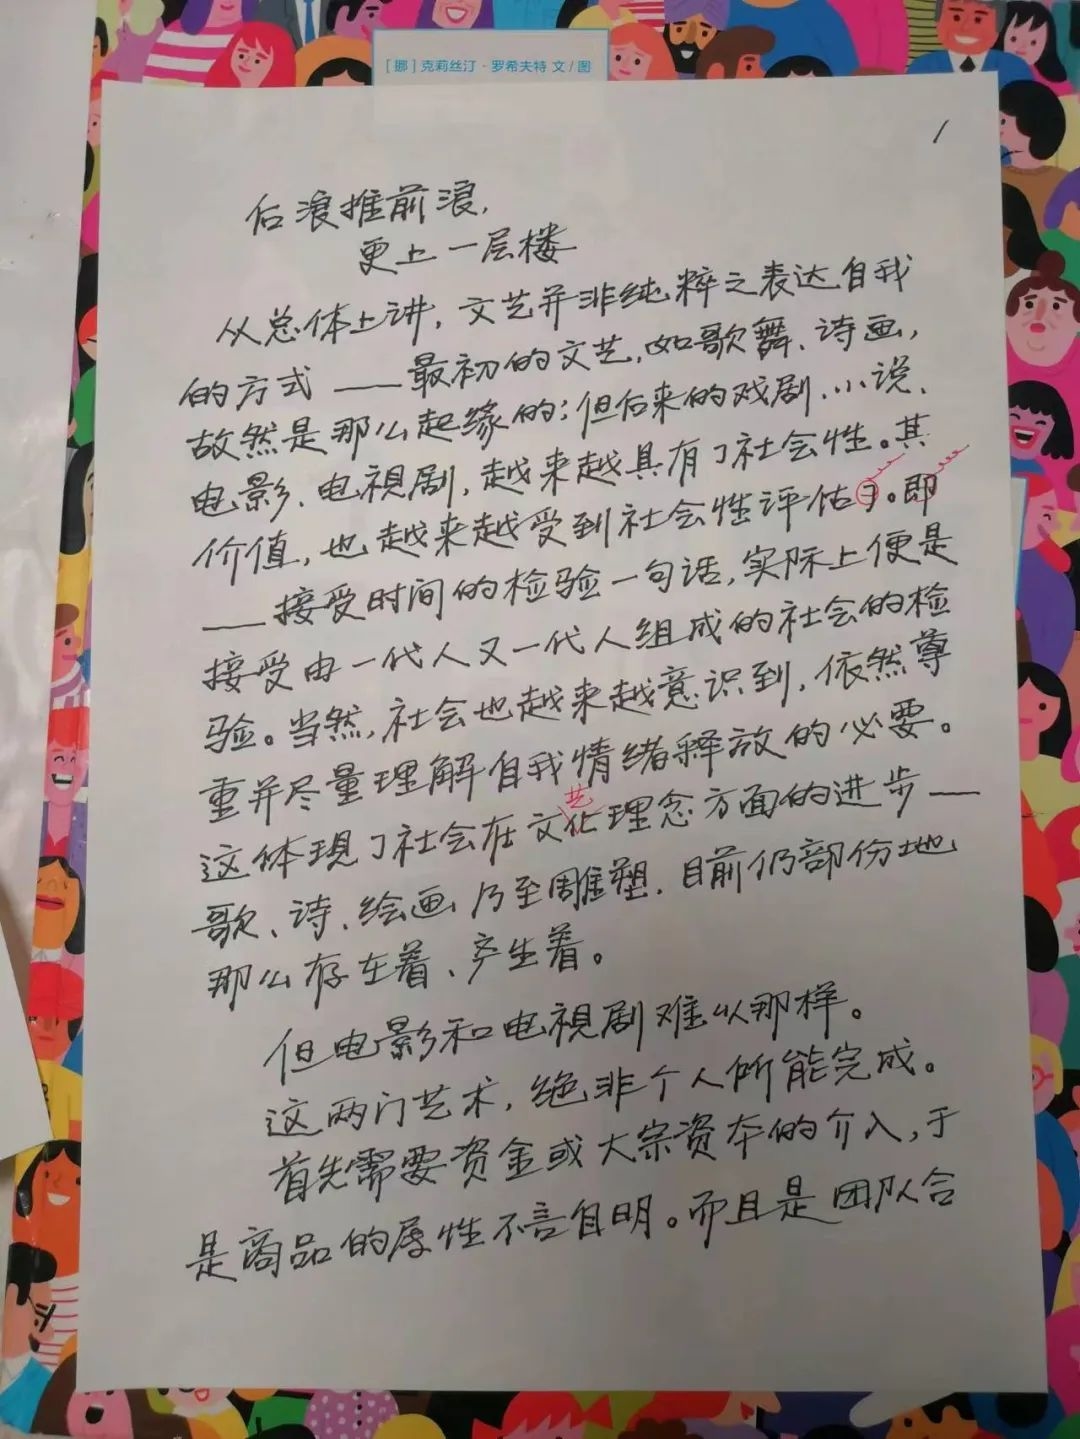 [挪] 克莉丝汀·罗希夫特 文/图
1
后浪推前浪,
更上一层楼
从总体上讲,文艺并非纯粹之表达自我
的方式——最初的文艺,如歌舞、诗画,
故然是那么起缘的;但后来的戏剧、小说、
电影、电視剧,越来越具有了社会性。其
价值,也越来越受到社会性评估了。即
——接受时间的检验一句话,实际上便是
接受由一代人又一代人组成的社会的检
验。当然,社会也越来越意识到,依然尊
重并尽量理解自我情绪释放的必要。
艺
这体現了社会在文化理念方面的进步——
歌、诗、绘画乃至雕塑,目前仍部份地
那么存在着、产生着。
但电影和电視剧难以那样。
这两门艺术,绝非个人所能完成。
首先需要资金或大宗资本的介入,于
是商品的属性不言自明。而且是团队合